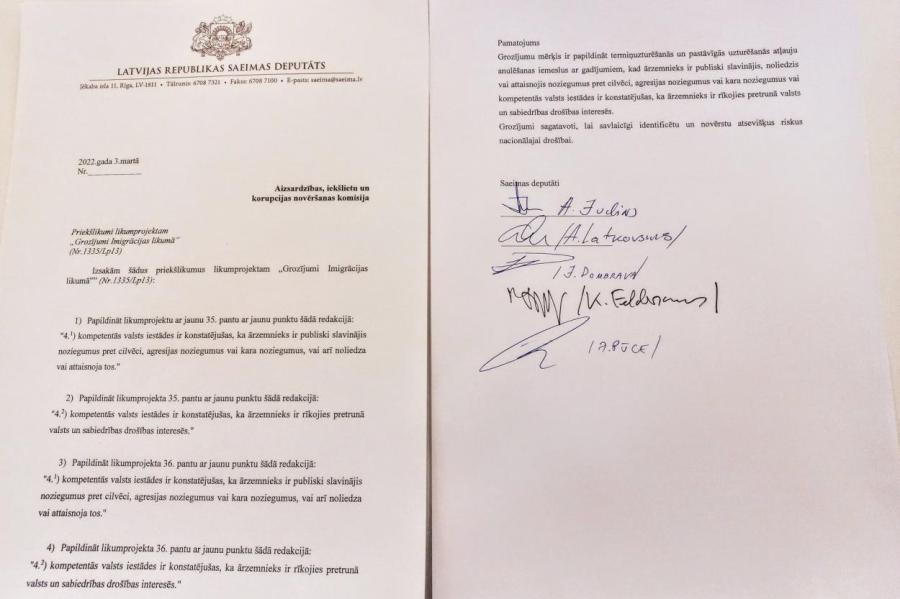 LATVIJAS REPUBLIKAS SAEIMAS DEPUTĀTS
Jēkaba iela 11, Rīga, LV-1811 • Tālrunis: 6708 7321 • Fakss: 6708 7100 • E-pasts: saeima@saeima.lv
2022.gada 3.martā
Nr.____________
Aizsardzības, iekšlietu un
korupcijas novēršanas komisija
Priekšlikumi likumprojektam
„Grozījumi Imigrācijas likumā”
(Nr.1335/Lp13)
Izsakām šādus priekšlikumus likumprojektam „Grozījumi Imigrācijas
likumā”” (Nr.1335/Lp13):
1) Papildināt likumprojektu ar jaunu 35. pantu ar jaunu punktu šādā redakcijā:
"4.¹) kompetentās valsts iestādēs ir konstatējušas, ka ārzemnieks ir publiski slavinājis
noziegumus pret cilvēci, agresijas noziegumus vai kara noziegumus, vai arī noliedza
vai attaisnoja tos."
2) Papildināt likumprojekta 35. pantu ar jaunu punktu šādā redakcijā:
"4.²) kompetentās valsts iestādēs ir konstatējušas, ka ārzemnieks ir rīkojies pretrunā
valsts un sabiedrības drošības interesēs."
3) Papildināt likumprojekta 36. pantu ar jaunu punktu šādā redakcijā:
"4.¹) kompetentās valsts iestādēs ir konstatējušas, ka ārzemnieks ir publiski slavinājis
noziegumus pret cilvēci, agresijas noziegumus vai kara noziegumus, vai arī noliedza
vai attaisnoja tos."
4) Papildināt likumprojekta 36. pantu ar jaunu punktu šādā redakcijā:
"4.²) kompetentās valsts iestādēs ir konstatējušas, ka ārzemnieks ir rīkojies pretrunā
valsts un sabiedrības drošības interesēs."
Pamatojums
Grozījumu mērķis ir papildināt termiņuzturēšanās un pastāvīgās uzturēšanās atļauju
anulēšanas iemeslus ar gadījumiem, kad ārzemnieks ir publiski slavinājis, noliedzis
vai attaisnojis noziegumus pret cilvēci, agresijas noziegumus vai kara noziegumus vai
kompetentās valsts iestādes ir konstatējušas, ka ārzemnieks ir rīkojies pretrunā valsts
un sabiedrības drošības interesēs.
Grozījumi sagatavoti, lai savlaicīgi identificētu un novērstu atsevišķus riskus
nacionālajai drošībai.
Saeimas deputāti
A. Judins
/A. Latkovskis/
/J. DOMBRAVA/
/K. Feldmans/
/A.PŪCE/